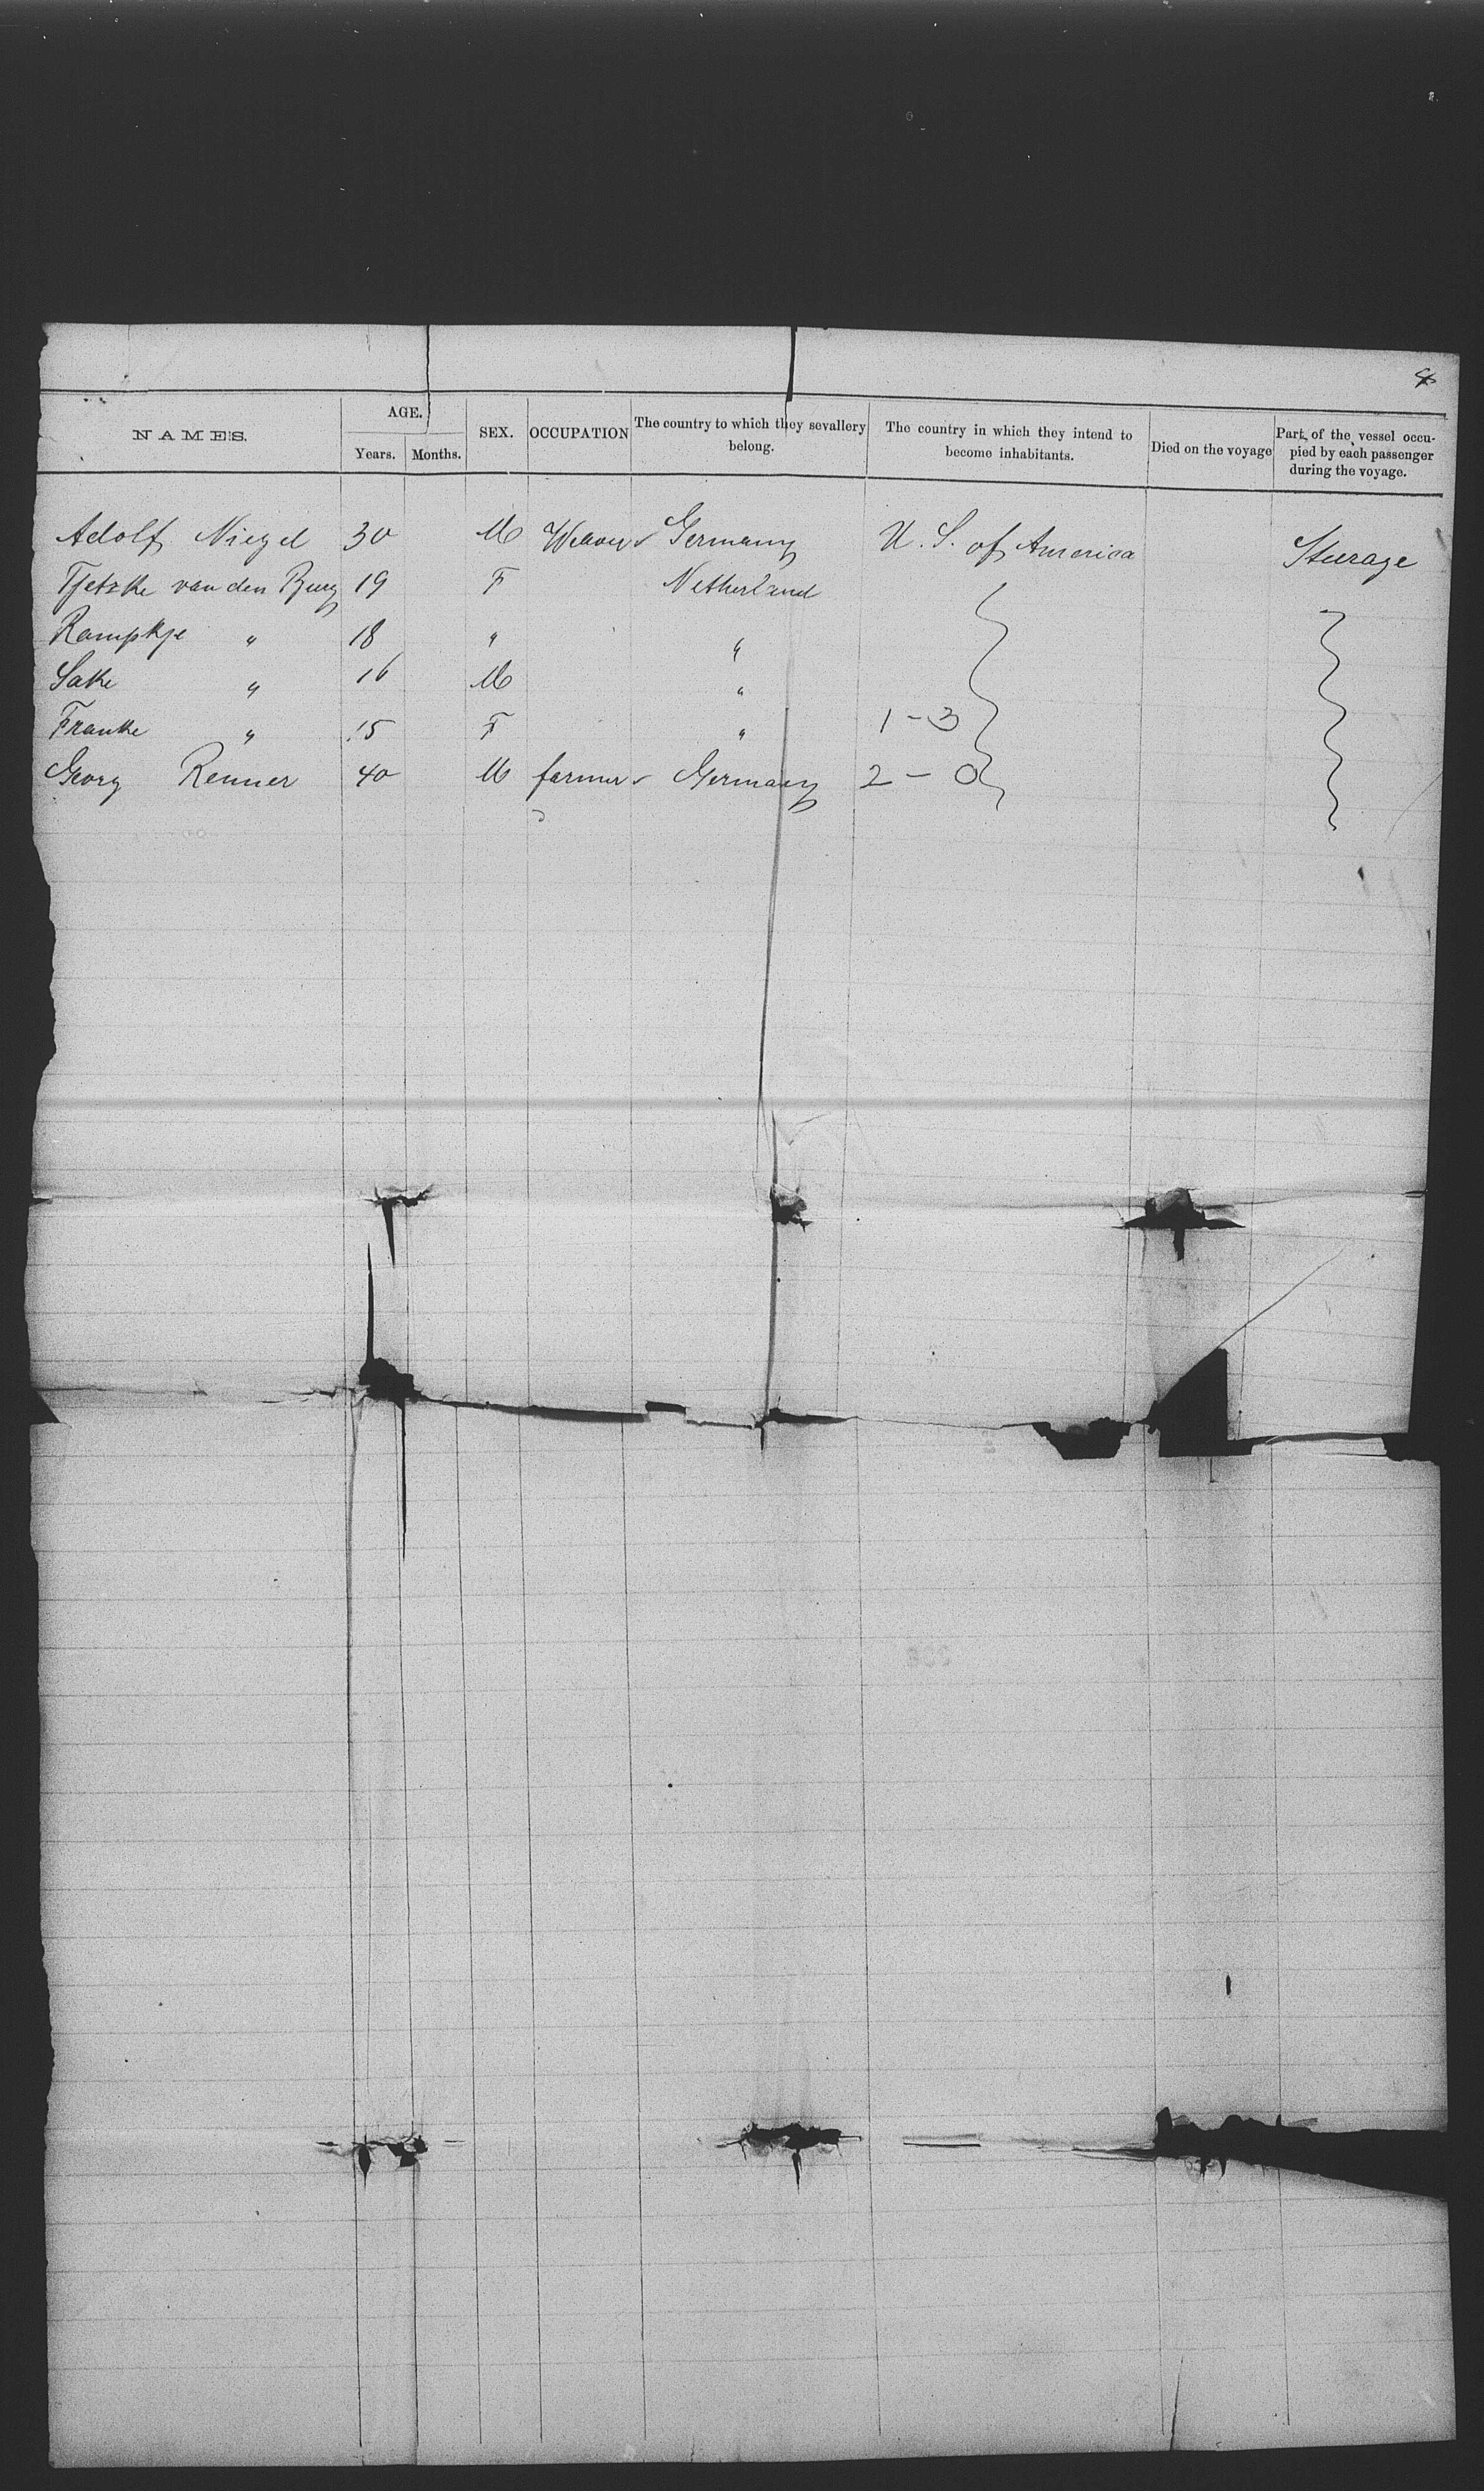 4
NAMES. AGE. Years. Months. SEX. OCCUPATION The country to which they sevallery belong. The country in which they intend to become inhabitants. Died on the voyage Part of the vessel occu- pied by each passenger during the voyage.
Adolf Niegel 30 M Weaver Germany U. S. of America Steerage
Tjetske van den Burg 19 F Netherland
Rompkje " 18 " "
Sake " 16 M "
Franke " 15 F " 1 - 3
Georg Renner 40 M farmer Germany 2 - 0